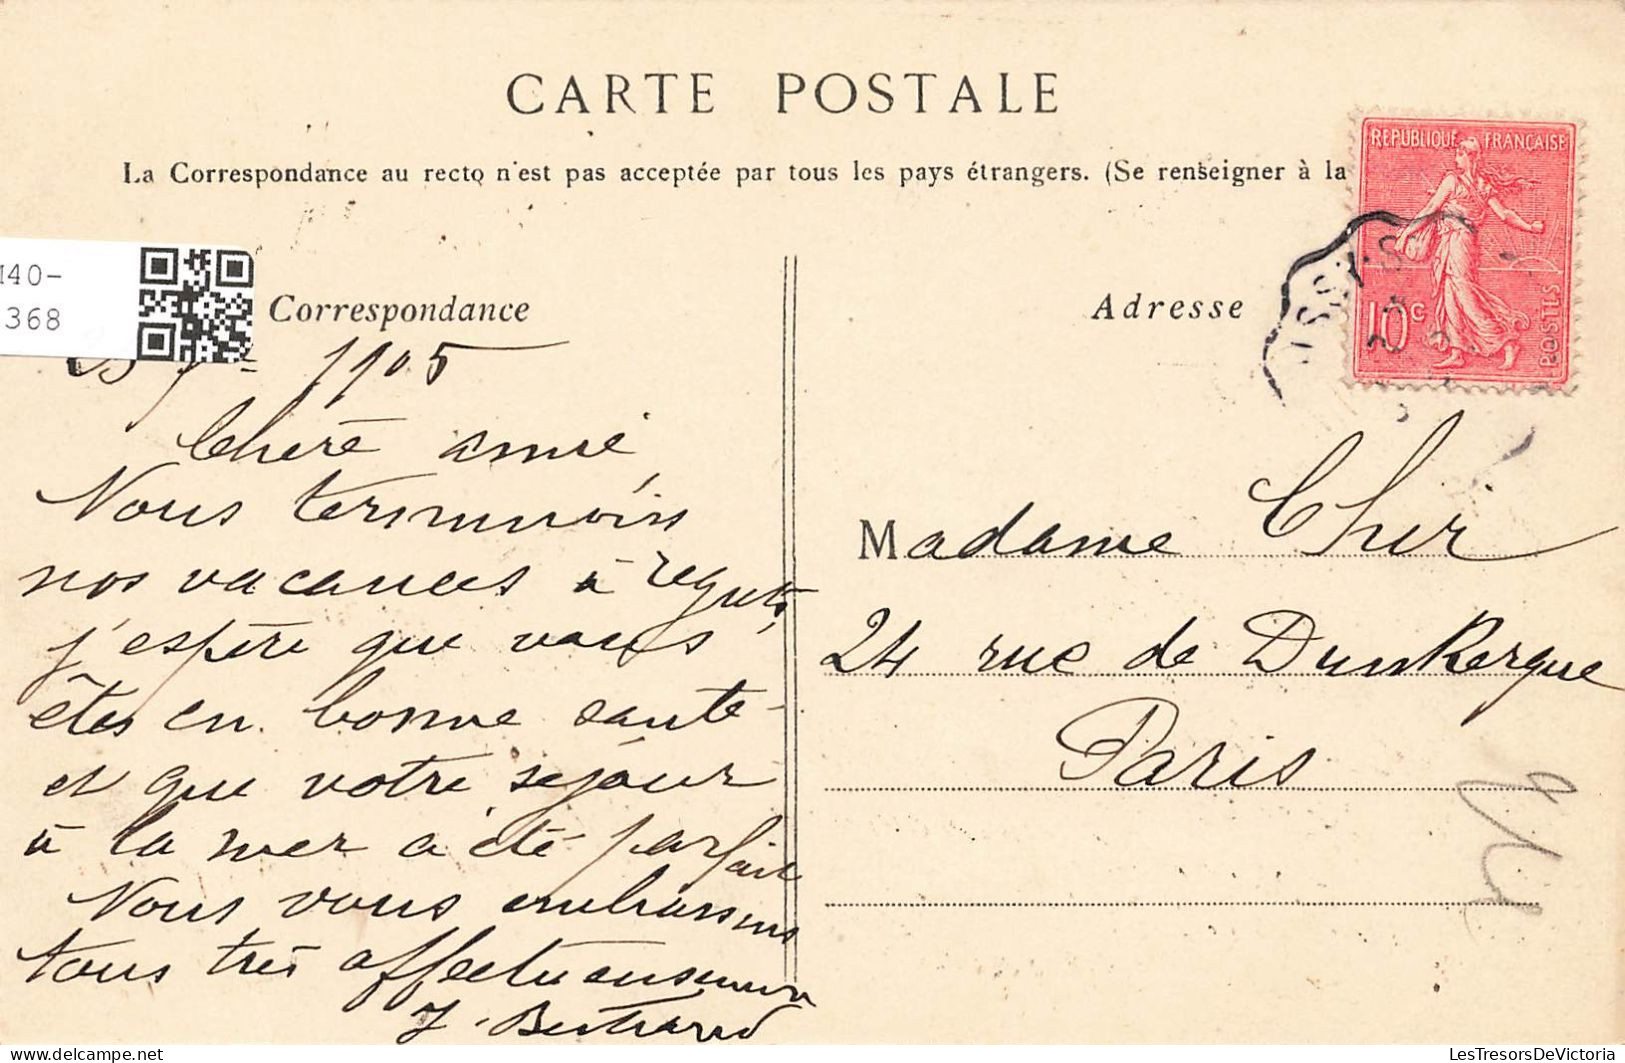 CARTE POSTALE
La Correspondance au recto n'est pas acceptée par tous les pays étrangers. (Se renseigner à la
REPUBLIQUE FRANÇAISE
10c
POSTES
140-
368
Correspondance
1905
Chère amie,
Nous terminons
nos vacances à regrets,
j'espère que vous
êtes en bonne santé
et que votre séjour
à la mer a été parfait
Nous vous embrassons
tous très affectueusement
J. Bertrand
Adresse
Madame Cher
24 rue de Dunkerque
Paris
LesTresorsDeVictoria
© delcampe.net